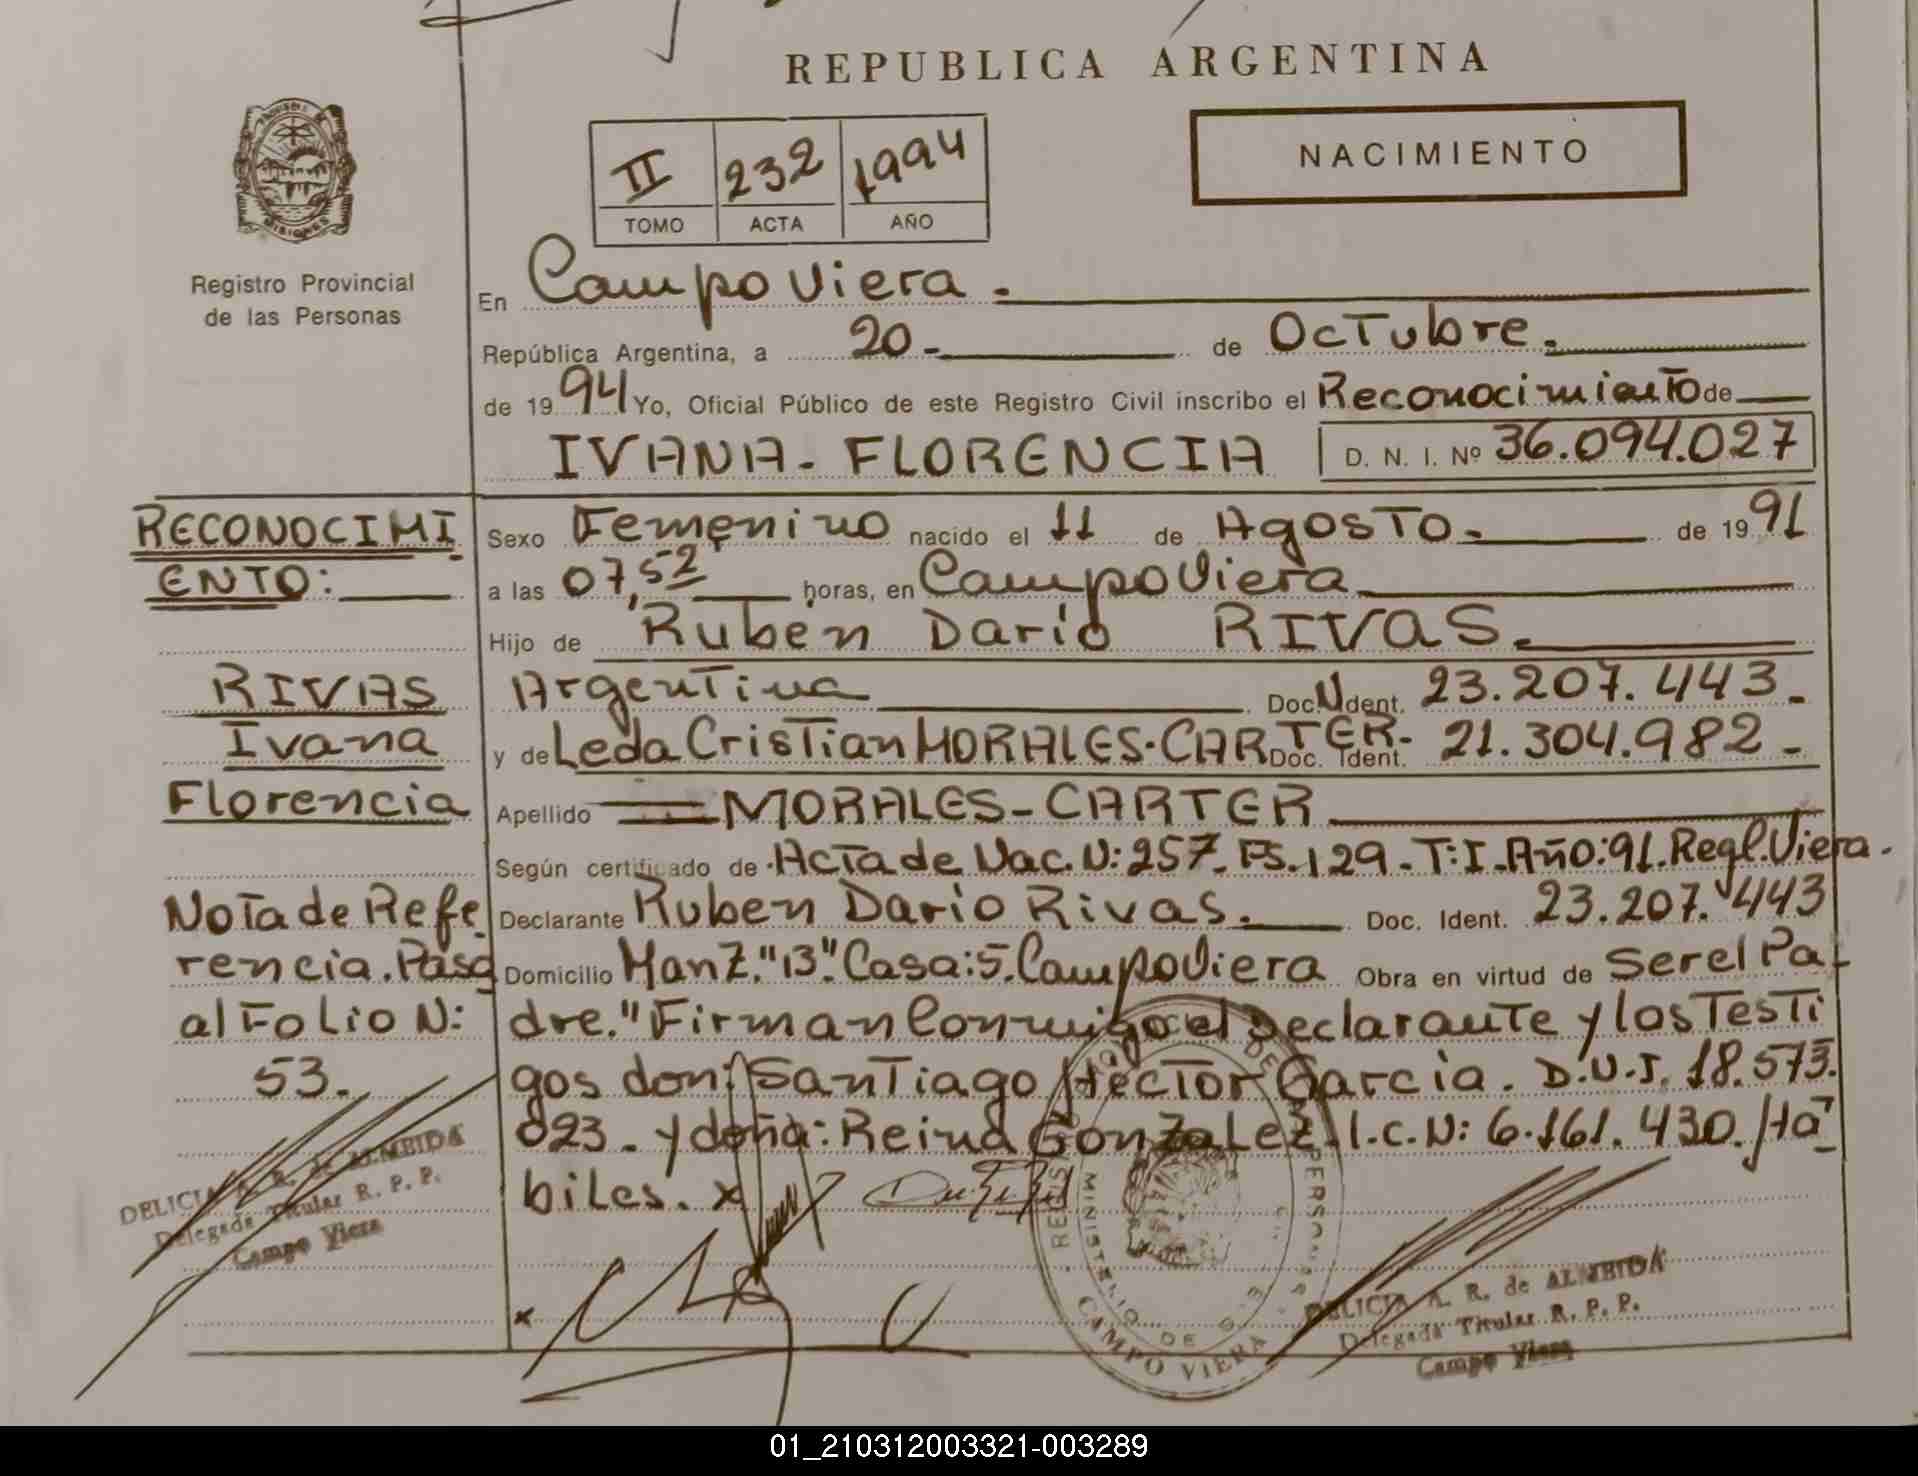 REPUBLICA ARGENTINA
NACIMIENTO
II 232 1994
TOMO ACTA AÑO
MISIONES
Registro Provincial
de las Personas
En Campo Viera.
República Argentina, a 20 de Octubre.
de 1994 Yo, Oficial Público de este Registro Civil inscribo el Reconocimiento de
IVANA - FLORENCIA D. N. I. Nº 36.094.027
RECONOCIMI
ENTO:
RIVAS
Ivana
Florencia
Nota de Refe
rencia. Pasa
al Folio N:
53.
DELICIA A. R. de ALMEIDA
Delegada Titular R. P. P.
Campo Viera
Sexo Femenino nacido el 11 de Agosto. de 1991
a las 07,52 horas, en Campo Viera
Hijo de Ruben Dario RIVAS.
Argentina Doc. N Ident. 23.207.443.-
y de Leda Cristian MORALES-CARTER- Doc. Ident. 21.304.982-
Apellido MORALES-CARTER
Según certificado de Acta de Nac. N: 257. Fs. 129. T: I. Año: 91. Regl. Viera.
Declarante Ruben Dario Rivas. Doc. Ident. 23.207.443
Domicilio Manz. "13". Casa: 5. Campo Viera Obra en virtud de Ser el Pa-
dre." Firman Conmigo el Declarante y los Testi
gos don: Santiago Hector Garcia. D.N.I. 18.573.
823. y doña: Reina Gonzalez. L.C.N: 6.161.430. Há
biles. x
x
MINISTERIO DE
CAMPO VIERA
DELICIA A. R. de ALMEIDA
Delegada Titular R. P. P.
Campo Viera
01_210312003321-003289